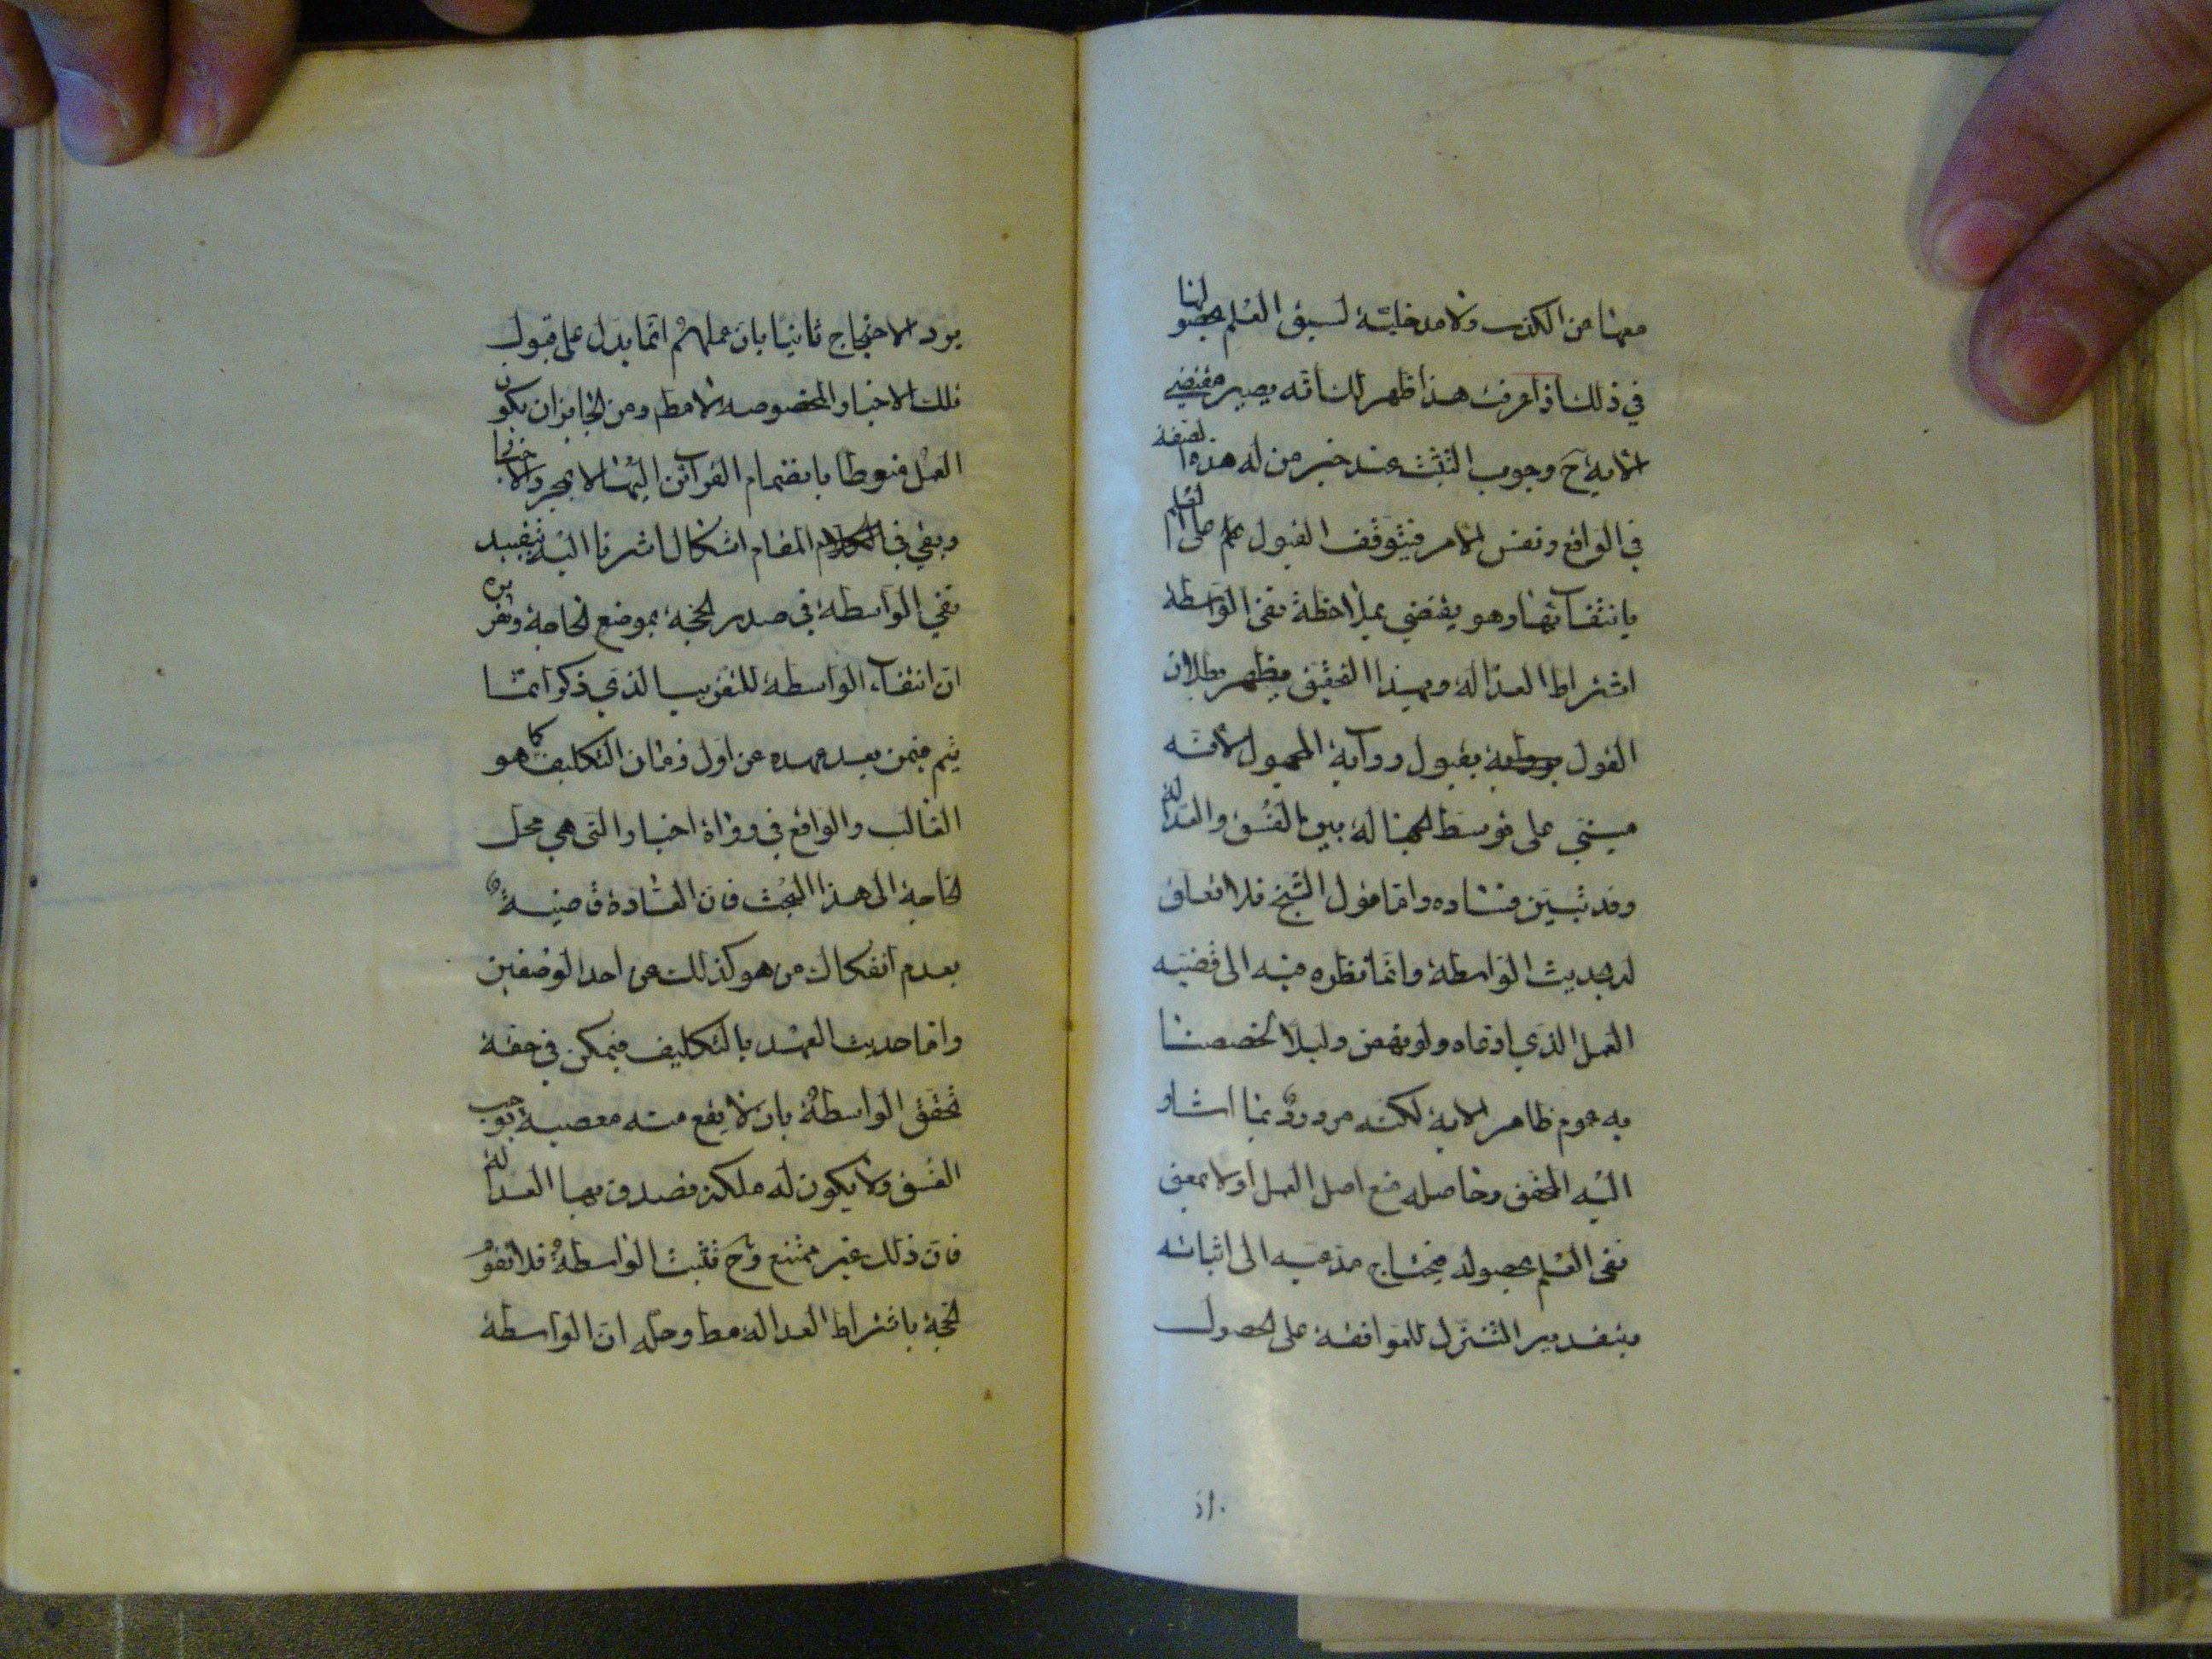 معها عن الكذب ولا مدخلية لسبق العلم بحصولها
في ذلك اذا عرفت هذا ظهر لك انه يصير مقتضى
الاية ح وجوب التثبت عند خبر من له هذه الصفة
في الواقع ونفس الامر فيتوقف القبول على العلم
بانتفائها وهو يقتضي بملاحظة نفى الواسطة
اشتراط العدالة وبهذا التحقيق يظهر بطلان
القول بقبول رواية المجهول لانه
مبني على توسط الجهالة بين الفسق والعدالة
وقد تبين فساده واما قول الشيخ فلا تعلق
له بحديث الواسطة وانما نظره فيه الى قضية
العمل الذي ادعاه ولو نهض دليلا لخصصنا
به عموم ظاهر الاية لكنه مردود بما اشار
اليه المحقق وحاصله منع اصل العمل اولا بمعنى
نفى العلم بحصوله فيحتاج مدعيه الى اثباته
بتقدير التنزل للموافقة على الحصول
يرد الاحتجاج ثانيا بان عملهم انما يدل على قبول
تلك الاخبار المخصوصه لا مطم ومن الجايز ان يكون
العمل منوطا بانضمام القرائن اليها لا بمجرد الاخبار
وبقي في المقام اشكال اشرنا اليه بتقييد
نفي الواسطة في صدر الحجة بموضع الحاجة وتقريره
ان انتفاء الواسطة للتقريب الذي ذكر انما
يتم فيمن بعد عهده عن اول زمان التكليف كما هو
الغالب والواقع في رواة اخبار التى هي محل
الحاجة الى هذا البحث فان العادة قاضية
بعدم انفكاك من هو كذلك عن احد الوصفين
واما حديث العهد بالتكليف فيمكن في حقه
تحقق الواسطة بان لا يقع منه معصية توجب
الفسق ولا يكون له ملكة تصدق بها العدالة
فان ذلك غير ممتنع وح فتثبت الواسطة فلا تقوم
الحجة باشتراط العدالة مط وحله ان الواسطة